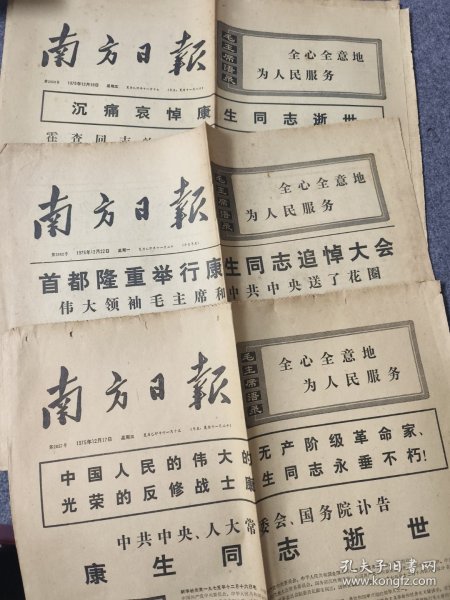 南方日報
毛主席语录
全心全意地
为人民服务
1975年12月18日 星期四
沉痛哀悼康生同志逝世
霍查同志
南方日報
毛主席语录
全心全意地
为人民服务
1975年12月22日 星期一
首都隆重举行康生同志追悼大会
伟大领袖毛主席和中共中央送了花圈
南方日報
毛主席语录
全心全意地
为人民服务
1975年12月17日 星期三
中国人民的伟大的无产阶级革命家、
光荣的反修战士康生同志永垂不朽！
中共中央、人大常委会、国务院讣告
康生同志逝世
新华社北京一九七五年十二月十六日电
孔夫子旧书网